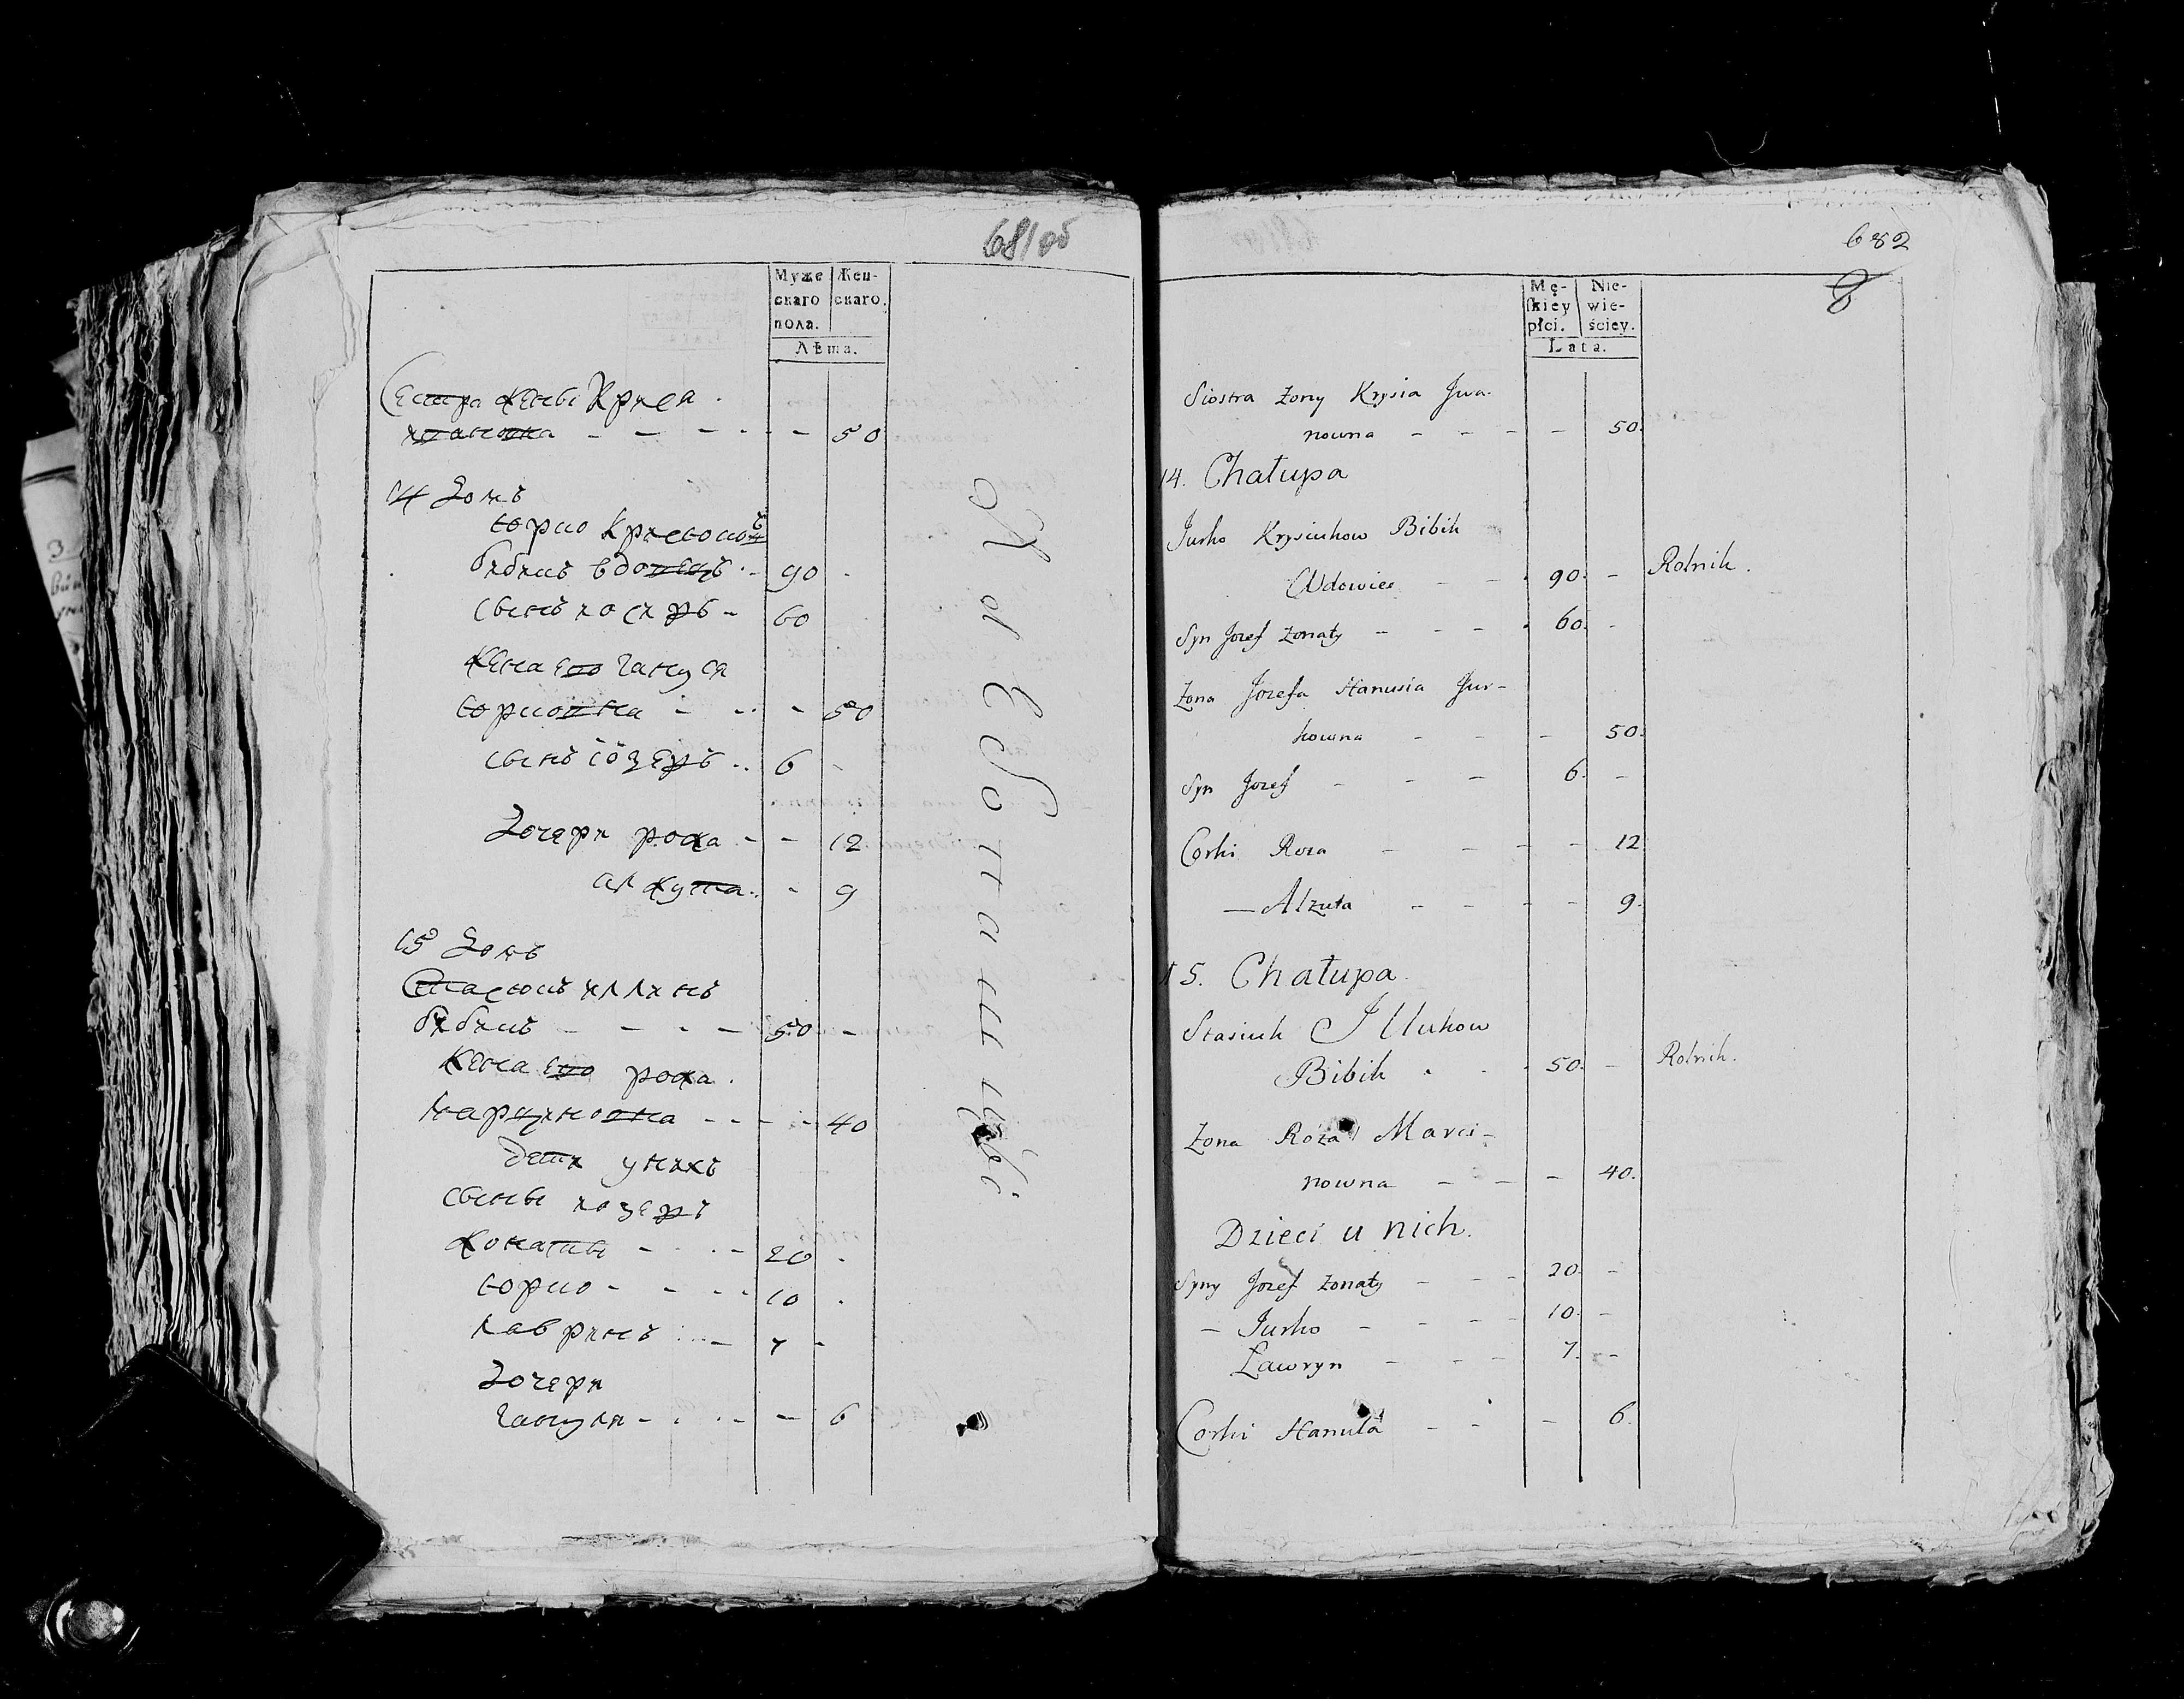 681об
Муже
скаго
пола.
Жен-
скаго.
Лѣта.
Сестра жены Крися
ивановна - - - - - 50
14 Домъ
юрко Крисюковъ
бибикъ вдовецъ - 90 -
сынъ иосифъ - 60
жена его гануся
юрковна - - - 50
сынъ іозефъ - 6 -
Дочери рожа - - 12
алжута - - 9
15 Домъ
Стасюкъ иллинъ
бибикъ - - - - 50 -
жена его рожа
марциновна - - - - 40
дети у нихъ
сыны иозефъ
жонаты - - - 20 -
юрко - - - - 10 -
лавринъ - 7 -
Дочери
гануля - - - - 6
682
8
Mę-
skiey
płci.
Nie-
wie-
ściey.
Lata.
Siostra żony Krysia Jwa-
nowna - - - - 50.
14. Chałupa
Jurko Krysiukow Bibik
Wdowiec - - 90. - Rolnik.
Syn Jozef żonaty - - - 60. -
Żona Jozefa Hanusia Jur-
kowna - - - 50.
Syn Jozef - - - 6. -
Corki Roza - - - - 12
— Alzuta - - - - 9.
15. Chałupa
Stasiuk Jllukow
Bibik - - 50. - Rolnik.
Żona Roża Marci-
nowna - - - 40.
Dzieci u nich.
Syny Jozef żonaty - - - 20. -
- Jurko - - - 10. -
Ławryn - - - 7. -
Corki Hanula - - - 6.